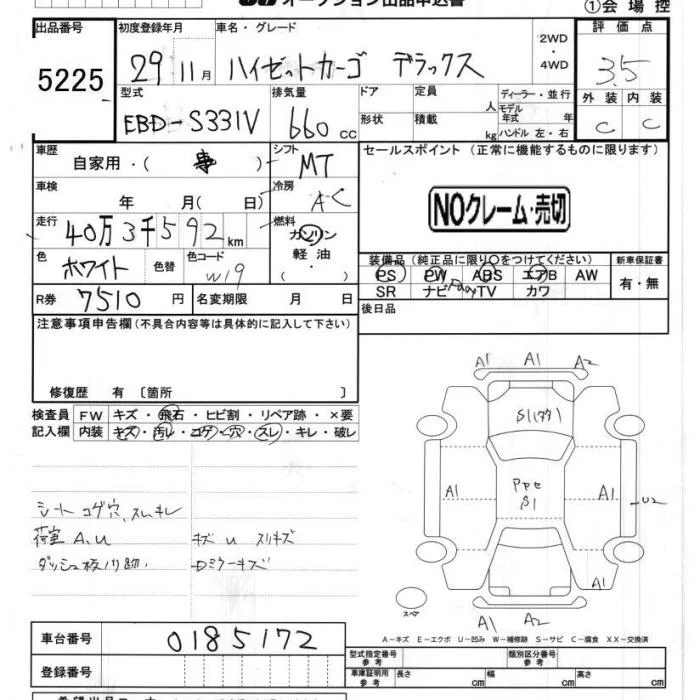 オークション出品申込書
①会場控
出品番号
5225
初度登録年月
29 11月
車名・グレード
ハイゼットカーゴ デラックス
2WD
・
4WD
評価点
3.5
外装 内装
C C
型式
EBD-S331V
排気量
660 cc
ドア
定員
人
形状
積載
kg
ディーラー・並行
モデル
年式 年
ハンドル 左・右
車歴
自家用・( 事 )
シフト
MT
車検
年 月( 日)
冷房
AC
走行
40万3千592 km
燃料
ガソリン
・
軽油
( )
色
ホワイト
色替
色コード
W19
R券
7510 円
名変期限 月 日
セールスポイント (正常に機能するものに限ります)
NOクレーム・売切
装備品(純正品に限り○をつけてください)
PS PW ABS エアB AW
SR ナビ TV カワ
新車保証書
有・無
後日品
注意事項申告欄(不具合内容等は具体的に記入して下さい)
修復歴 有 〔箇所 〕
検査員
記入欄
FW キズ・飛石・ヒビ割・リペア跡・×要
内装 キズ・汚レ・コゲ・穴・スレ・キレ・破レ
シート コゲ穴、スレキレ
荷室 A、U
キズ U スリキズ
Dミラーキズ
A1 A1 A2
A1
A1
U2
A1
A1 A2
スペア
A-キズ E-エクボ U-凹み W-補修跡 S-サビ C-腐食 XX-交換済
車台番号
0185172
登録番号
型式指定番号
参考
類別区分番号
参考
車庫証明用
参考
長さ cm
幅 cm
高さ cm